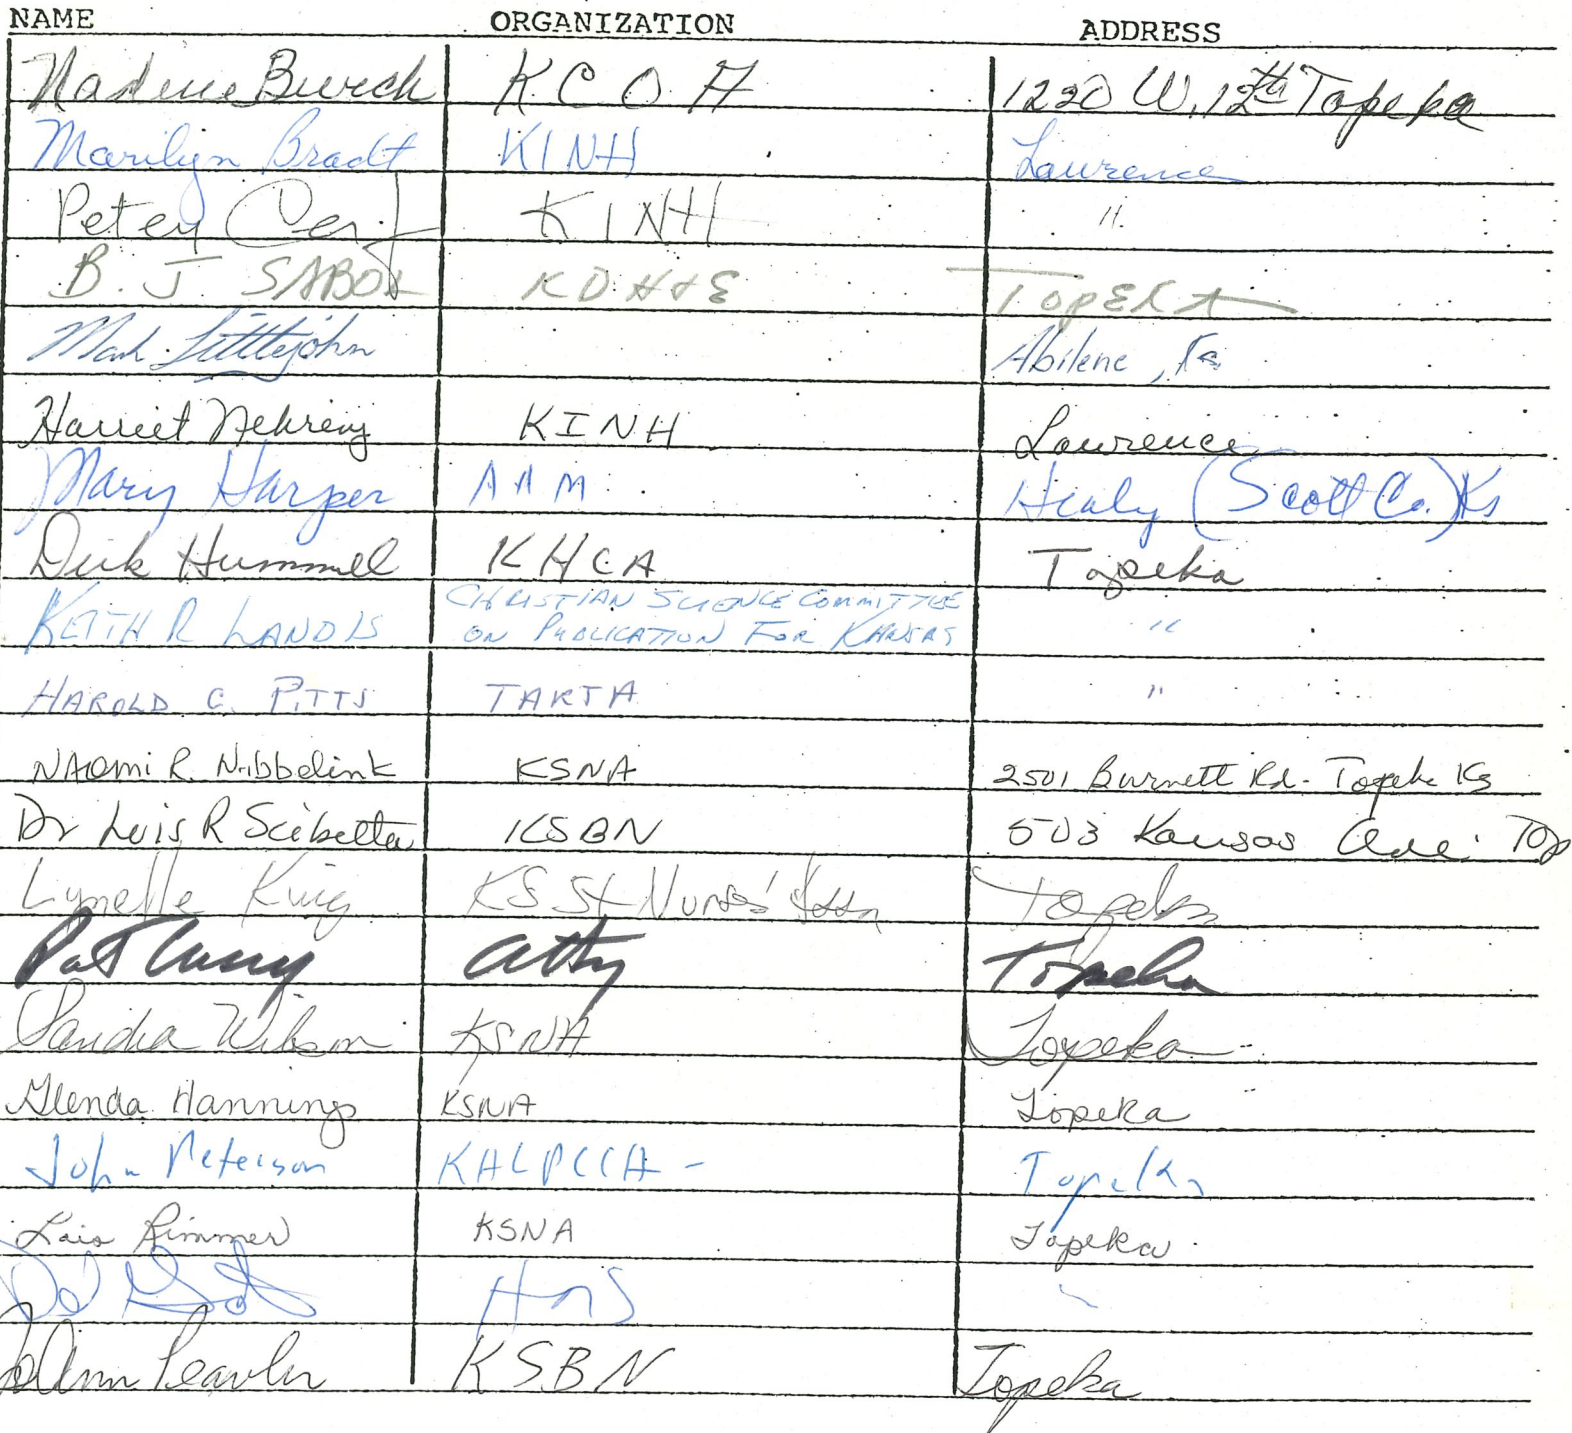 NAME ORGANIZATION ADDRESS
Nadine Burch KCOA 1220 W. 12th Topeka
Marilyn Bradt KINH Lawrence
Petey Cerf KINH "
B. J. SABOL KDH&E TOPEKA
Mark Littlejohn Abilene, Ks
Harriet Nehring KINH Lawrence
Mary Harper AAM Healy (Scott Co.) Ks
Dick Hummel KHCA Topeka
KEITH R LANDIS CHRISTIAN SCIENCE COMMITTEE ON PUBLICATION FOR KANSAS "
HAROLD C. PITTS TARTA "
NAOMI R. Nibbelink KSNA 2501 Burnett Rd- Topeka Ks
Dr Lois R Scibetta KSBN 503 Kansas Ave. Top
Lynelle King KS St Nurses' Assn Topeka
Pat Atty Topeka
Sandra Wilson KSNA Topeka
Glenda Hannings KSNA Topeka
John Peterson Topeka
Lois Rimmer KSNA Topeka
JoAnn Peavler KSBN Topeka